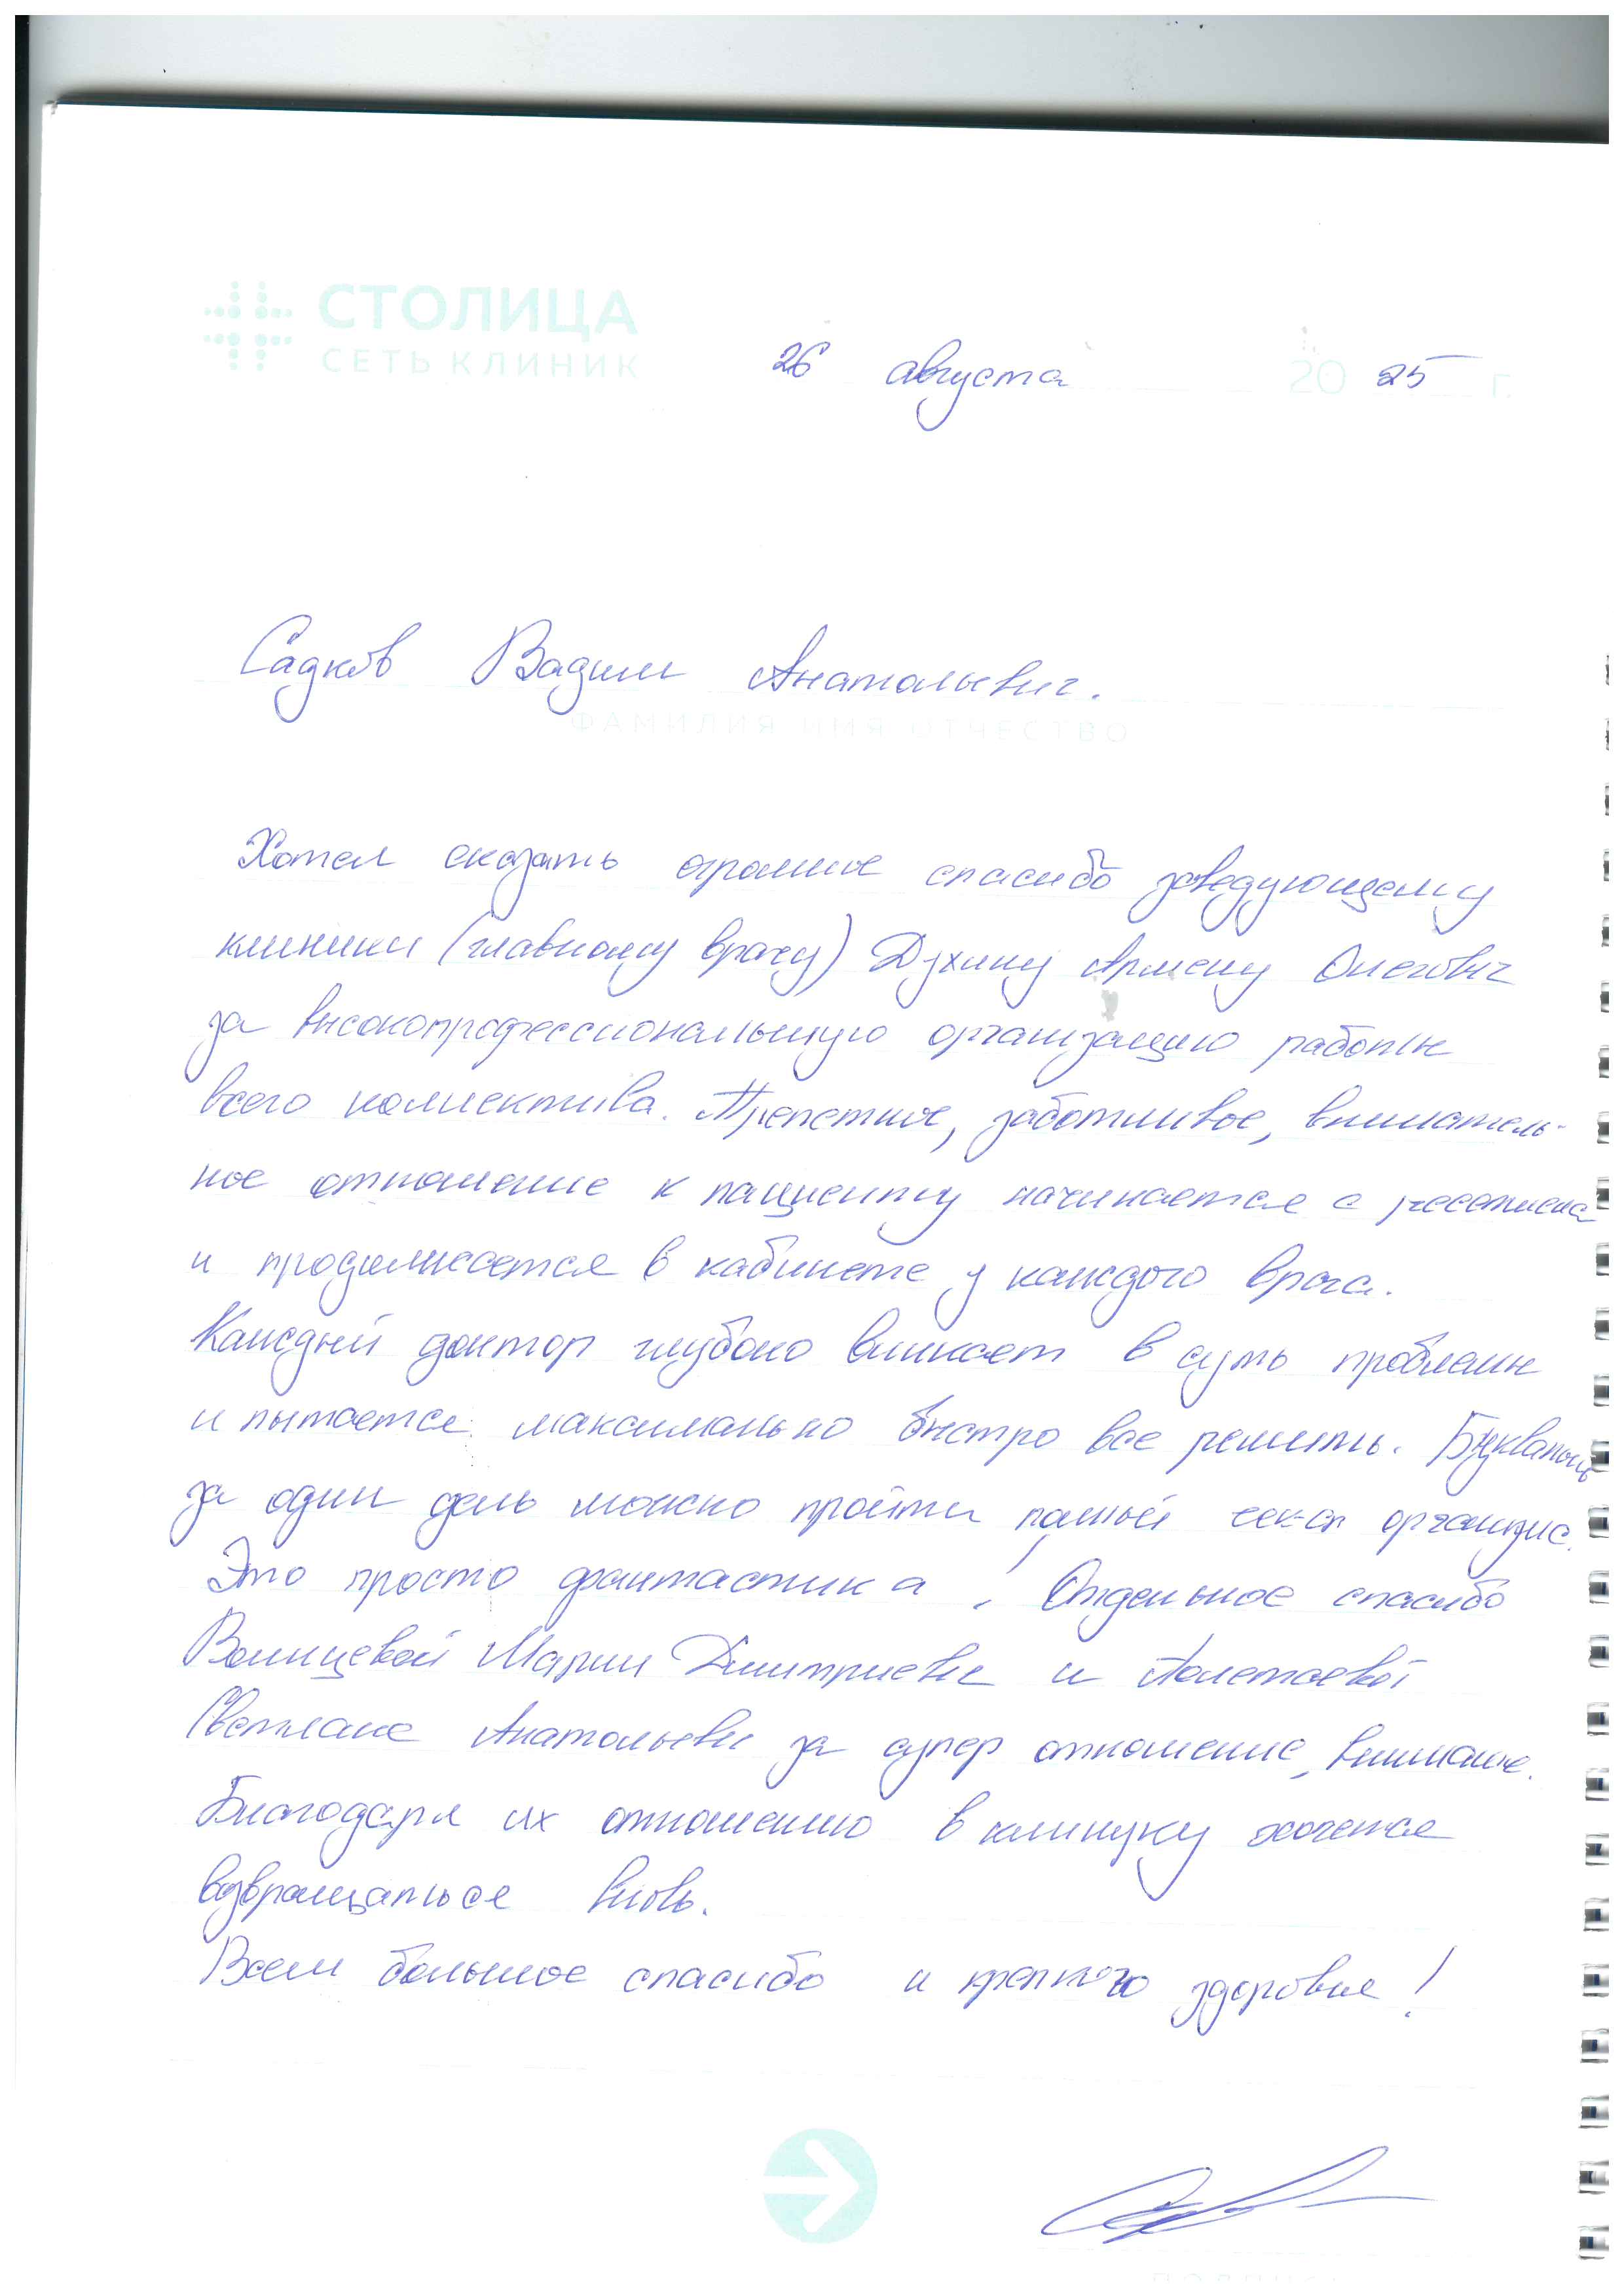 СТОЛИЦА
СЕТЬ КЛИНИК
26 августа 2025 г.
Садков Вадим Анатольевич.
ФАМИЛИЯ ИМЯ ОТЧЕСТВО
Хотел сказать огромное спасибо заведующему
клиники (главному врачу) Духину Армену Олегович
за высокопрофессиональную организацию работы
всего коллектива. Трепетное, заботливое, вниматель-
ное отношение к пациенту начинается с ресепшена
и продолжается в кабинете у каждого врача.
Каждый доктор глубоко вникает в суть проблемы
и пытается максимально быстро все решить. Буквально
за один день можно пройти полный организма.
Это просто фантастика! Отдельное спасибо
Марии Дмитриевне и Полетаевой
Светлане Анатольевне за супер отношение, внимание.
Благодаря их отношению в клинику хочется
возвращаться вновь.
Всем большое спасибо и крепкого здоровья!